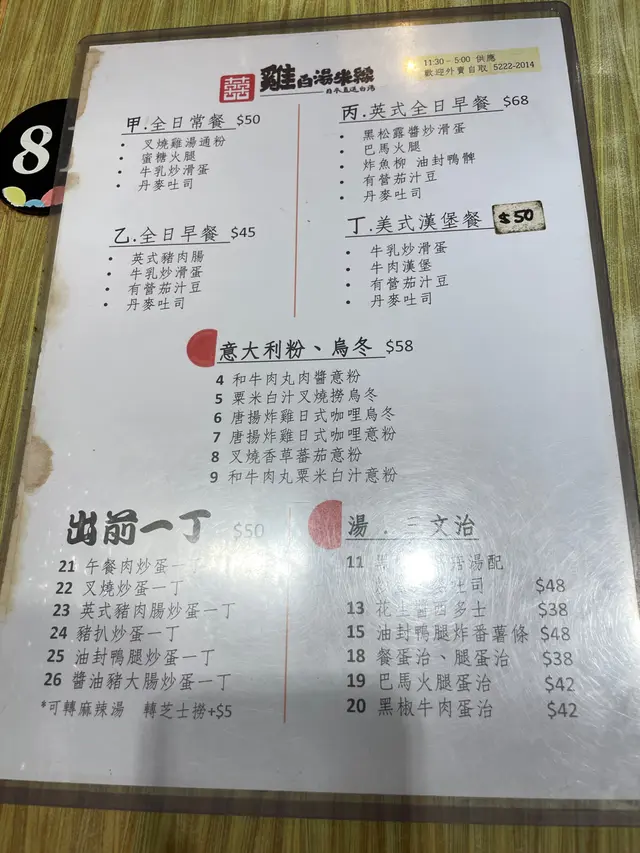 8
囍 雞白湯米線
11:30 - 5:00 供應
歡迎外賣自取 5222-2014
甲.全日常餐 $50
• 叉燒雞湯通粉
• 蜜糖火腿
• 牛乳炒滑蛋
• 丹麥吐司
丙.英式全日早餐 $68
• 黑松露醬炒滑蛋
• 巴馬火腿
• 炸魚柳 油封鴨髀
• 有營茄汁豆
• 丹麥吐司
乙.全日早餐 $45
• 英式豬肉腸
• 牛乳炒滑蛋
• 有營茄汁豆
• 丹麥吐司
丁.美式漢堡餐 $50
• 牛乳炒滑蛋
• 牛肉漢堡
• 有營茄汁豆
• 丹麥吐司
意大利粉、烏冬 $58
4 和牛肉丸肉醬意粉
5 粟米白汁叉燒撈烏冬
6 唐揚炸雞日式咖哩烏冬
7 唐揚炸雞日式咖哩意粉
8 叉燒香草蕃茄意粉
9 和牛肉丸粟米白汁意粉
出前一丁 $50
21 午餐肉炒蛋一丁
22 叉燒炒蛋一丁
23 英式豬肉腸炒蛋一丁
24 豬扒炒蛋一丁
25 油封鴨腿炒蛋一丁
26 醬油豬大腸炒蛋一丁
*可轉麻辣湯 轉芝士撈+$5
湯．三文治
11 黑 湯配
吐司 $48
13 花生醬西多士 $38
15 油封鴨腿炸番薯條 $48
18 餐蛋治、腿蛋治 $38
19 巴馬火腿蛋治 $42
20 黑椒牛肉蛋治 $42